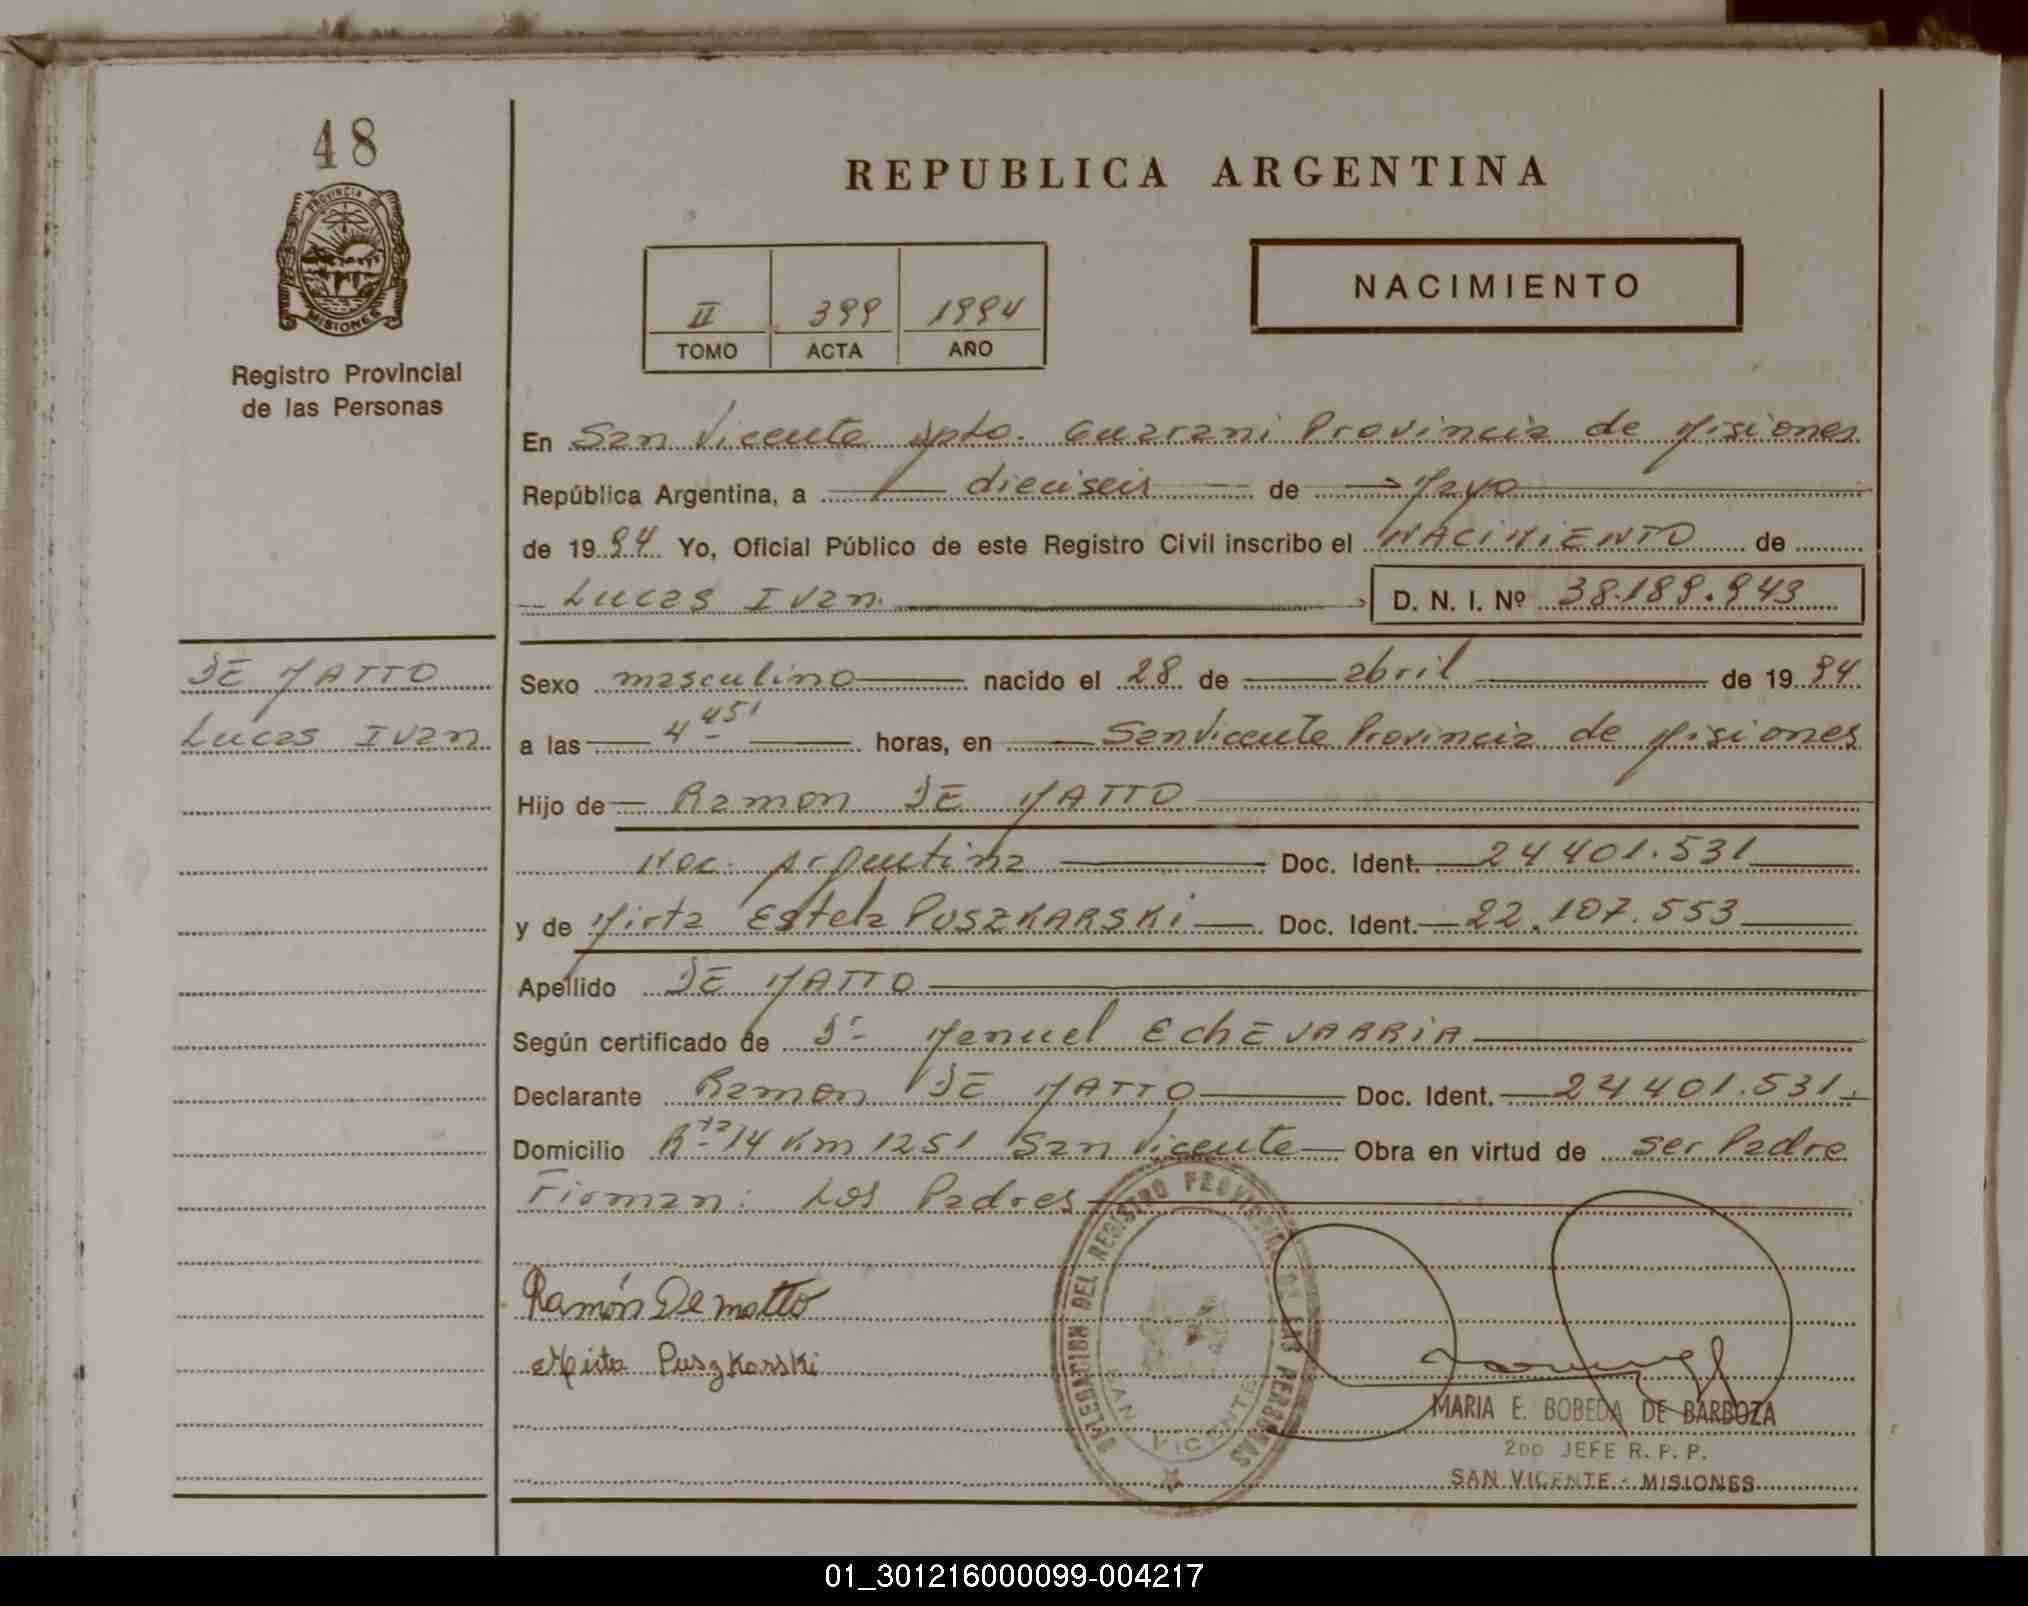 48
PROVINCIA DE
MISIONES
Registro Provincial
de las Personas
REPUBLICA ARGENTINA
II 399 1994
TOMO ACTA AÑO
NACIMIENTO
En San Vicente Dpto. Guarani Provincia de Misiones
República Argentina, a dieciseis de Mayo
de 1994 Yo, Oficial Público de este Registro Civil inscribo el NACIMIENTO de
Lucas Ivan. D. N. I. Nº 38.189.943
DE MATTO
Lucas Ivan
Sexo masculino nacido el 28 de abril de 1994
a las 4 45' horas, en San Vicente Provincia de Misiones
Hijo de Ramon DE MATTO
Nac. Argentina Doc. Ident. 24401.531
y de Mirta Estela PUSZKARSKi Doc. Ident. 22.107.553
Apellido DE MATTO
Según certificado de Dr Manuel EchEVARRiA
Declarante Ramon DE MATTO Doc. Ident. 24401.531.
Domicilio Rta 14 Km 1251 San Vicente Obra en virtud de ser Padre
Firman: Los Padres
Ramón De matto
Mirta Puszkarski
DELEGACION DEL REGISTRO PROVINCIAL DE LAS PERSONAS
SAN VICENTE
MARIA E. BOBEDA DE BARBOZA
2DO JEFE R. P. P.
SAN VICENTE - MISIONES
01_301216000099-004217